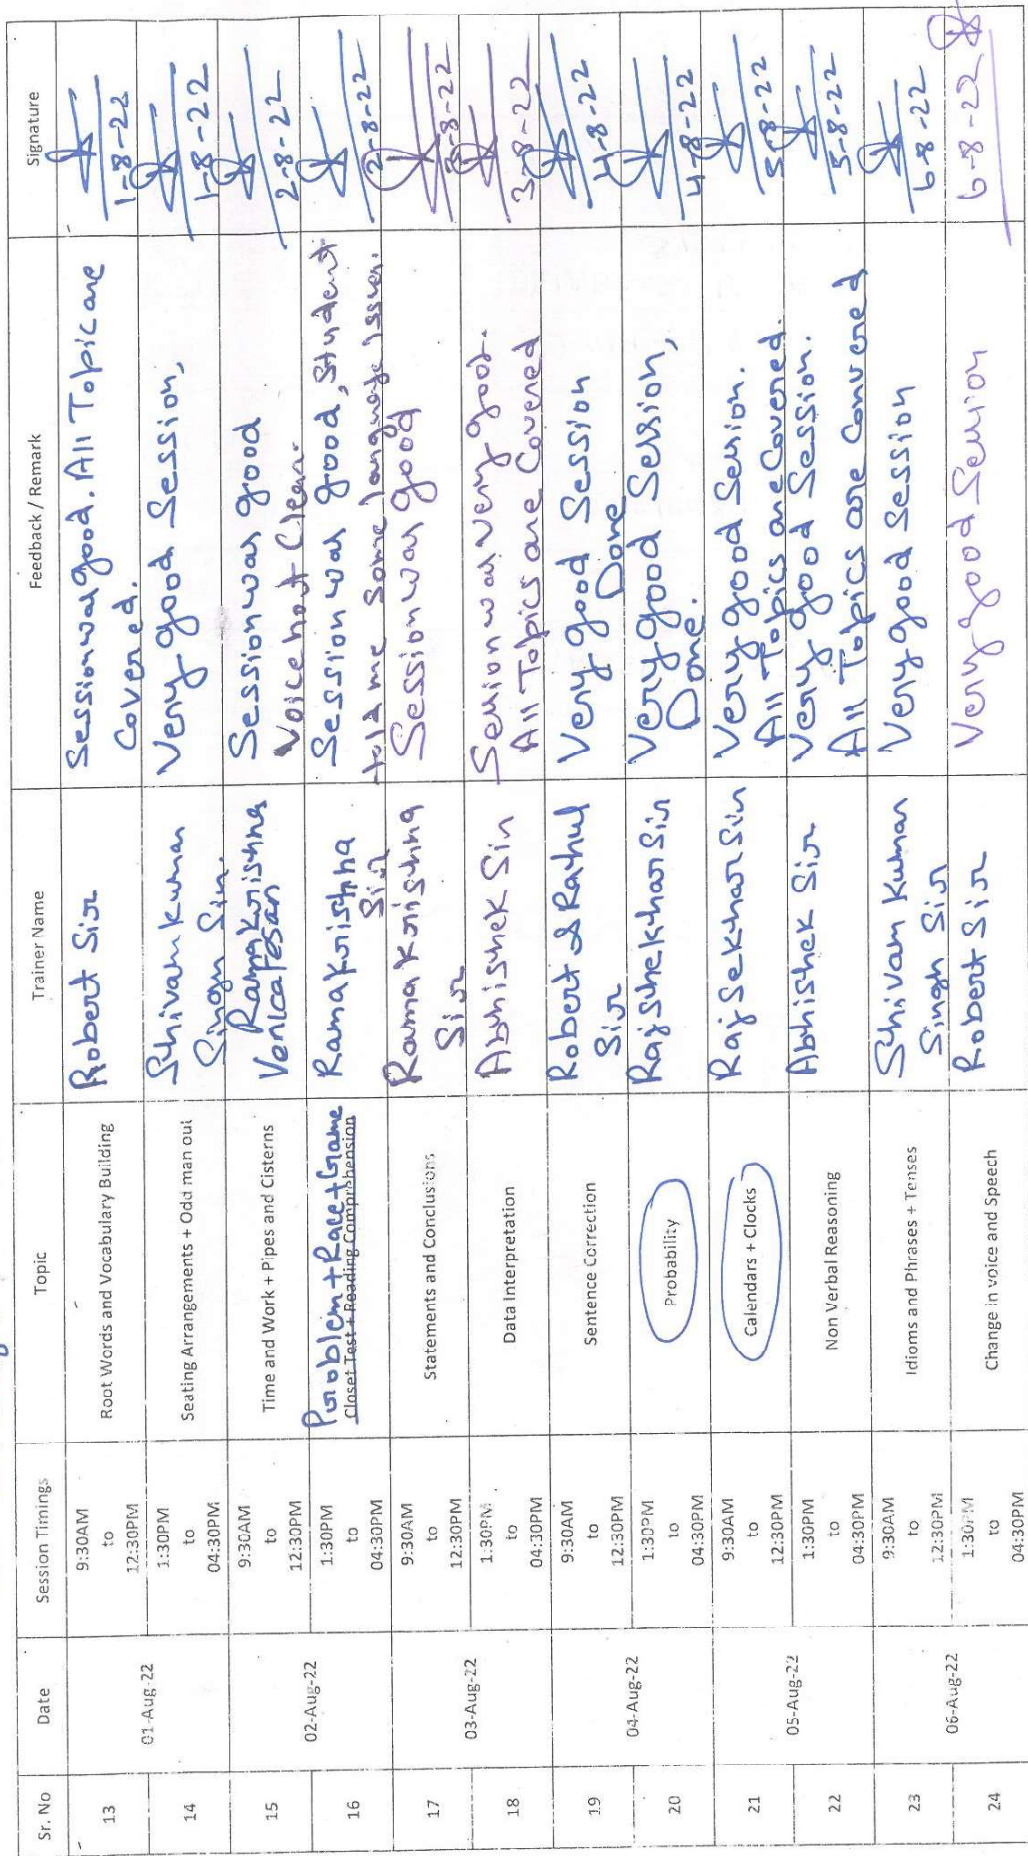 Sr. No Date Session Timings Topic Trainer Name Feedback / Remark Signature
13 01-Aug-22 9:30AM to 12:30PM Root Words and Vocabulary Building Robert Sir Session was good. All Topic are Covered. 1-8-22
14 1:30PM to 04:30PM Seating Arrangements + Odd man out Shivam Kumar Singh Sir. Very good Session, 1-8-22
15 02-Aug-22 9:30AM to 12:30PM Time and Work + Pipes and Cisterns Ramakrishna Session was good Voice not Clear. 2-8-22
16 1:30PM to 04:30PM Problem + Race + Game Closet Test + Reading Comprehension Ramakrishna Sir Session was good, Student told me some language Issues. 2-8-22
17 03-Aug-22 9:30AM to 12:30PM Statements and Conclusions Ramakrishna Sir Session was good 3-8-22
18 1:30PM to 04:30PM Data Interpretation Abhishek Sir Session was very good. All Topics are Covered 3-8-22
19 04-Aug-22 9:30AM to 12:30PM Sentence Correction Robert & Rahul Sir Very good Session Done 4-8-22
20 1:30PM to 04:30PM Probability Rajshekhar Sir Very good Session, Done. 4-8-22
21 05-Aug-22 9:30AM to 12:30PM Calendars + Clocks Rajsekhar Sir Very good Session. All Topics are Covered. 5-8-22
22 1:30PM to 04:30PM Non Verbal Reasoning Abhishek Sir Very good Session. All Topics are Convered 5-8-22
23 06-Aug-22 9:30AM to 12:30PM Idioms and Phrases + Tenses Shivam Kumar Singh Sir Very good Session 6-8-22
24 1:30PM to 04:30PM Change in voice and Speech Robert Sir Very good Session 6-8-22